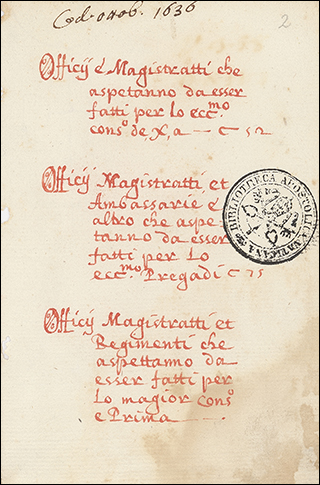 Cod. ottob. 1636
2
Officÿ é Magistratti che
aspetanno da esser
fatti per lo ecc.mo
cons.o de X, a — C 52
Officÿ Magistratti, et
Ambassarie é
altro che aspe-
tanno da esser
fatti per lo
ecc.mo Pregadi C 25
BIBLIOTHECA APOSTOLICA VATICANA
Officÿ Magistratti et
Regimenti che
aspettanno da
esser fatti per
lo magior cons.o
e Prima —